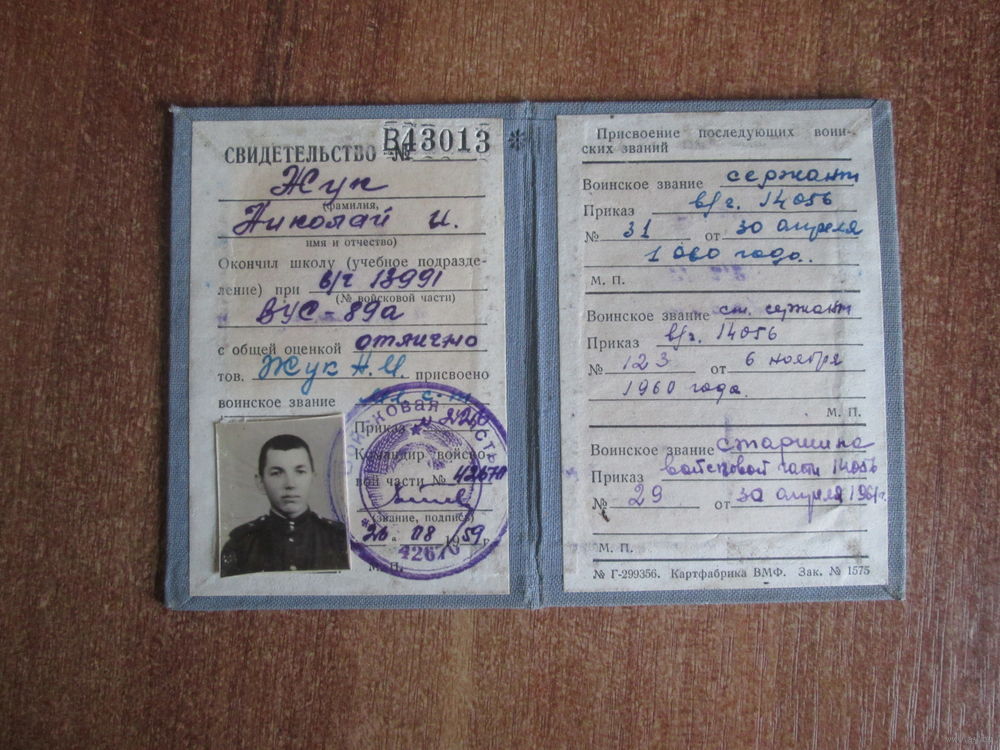 СВИДЕТЕЛЬСТВО № В43013
Жук
(фамилия,
Николай И.
имя и отчество)
Окончил школу (учебное подразде-
ление) при в/ч 13991
(№ войсковой части)
ВУС-89а
с общей оценкой отлично
тов. Жук Н.И. присвоено
воинское звание мл. с-т
Приказ №
Командир войско-
вой части № 42670
(звание, подпись)
26. 08 1959 г.
М.П.
войсковая часть
42670
*
Присвоение последующих воин-
ских званий
Воинское звание сержант
Приказ в/ч. 14056
№ 31 от 30 апреля
1960 года.
М. П.
Воинское звание ст. сержант
Приказ в/ч. 14056
№ 123 от 6 ноября
1960 года.
М. П.
Воинское звание старшина
Приказ войсковой части 14056
№ 29 от 30 апреля 1961г.
М. П.
№ Г-299356. Картфабрика ВМФ. Зак. № 1575